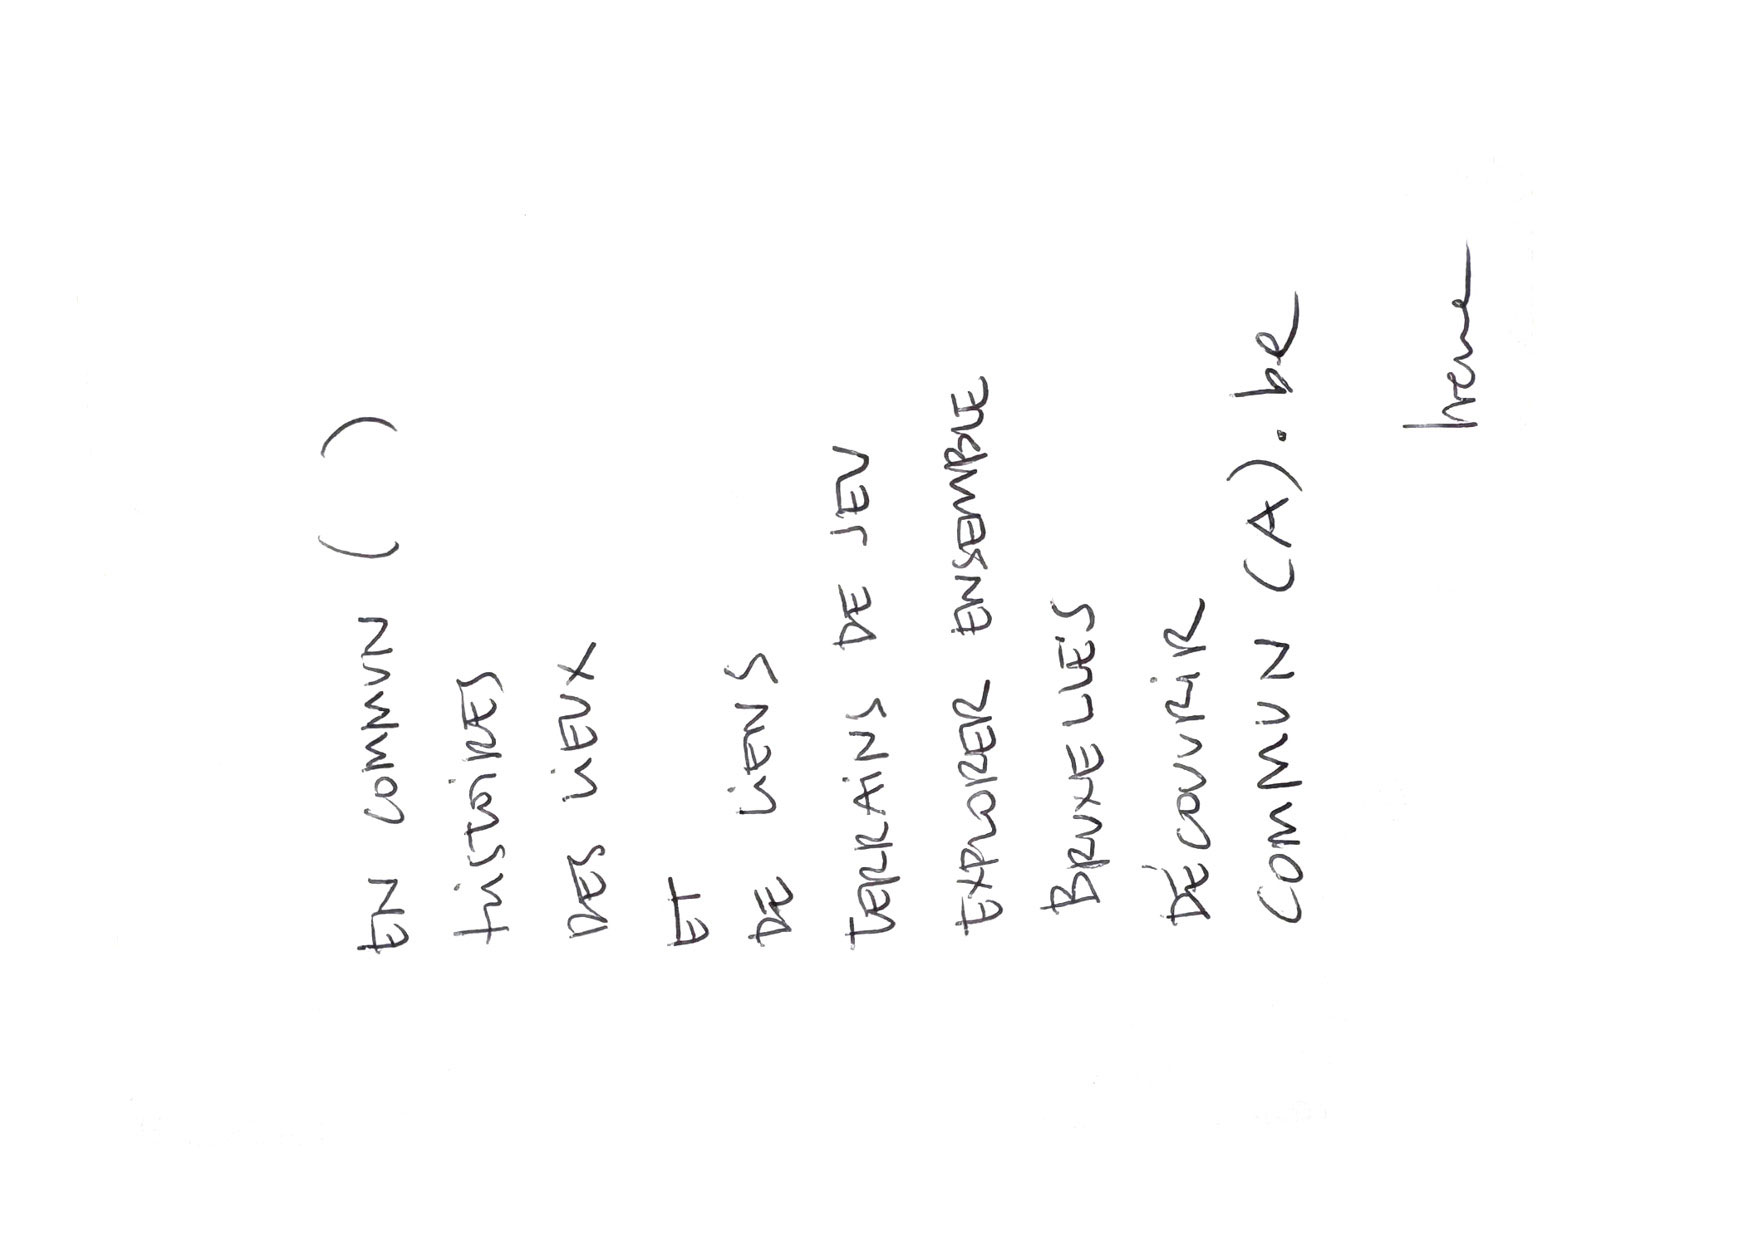 EN COMMUN ( )
HiSTOiRES
DES LiEUX
ET
DE LiENS
TERRAiNS DE JEU
EXPLORER ENSEMBLE
BRUXELLES
DÉCOUVRiR
COMMUN (A).be
Irene